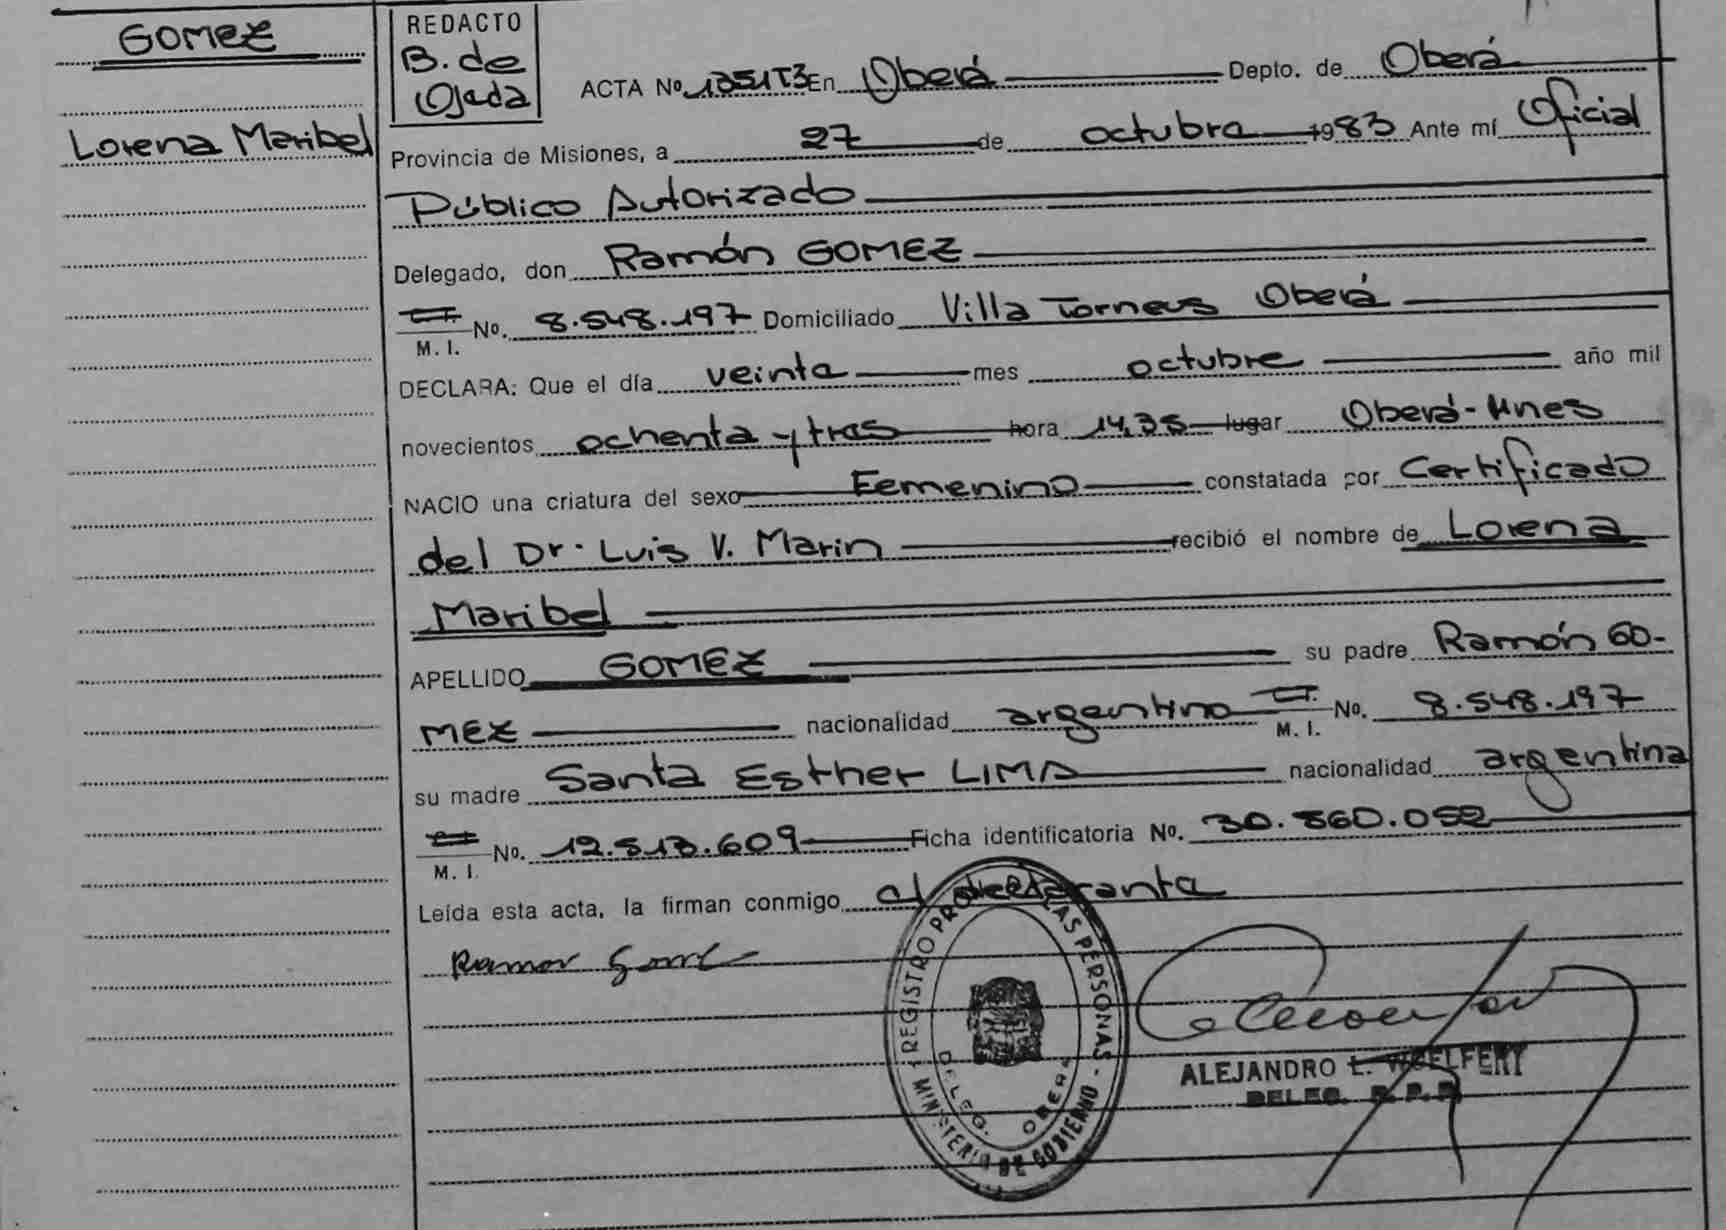 GOMEZ
Lorena Maribel
REDACTO
B. de
Ojeda
ACTA No. 1351T3 En Oberá Depto. de Oberá
Provincia de Misiones, a 27 de octubre 1983 Ante mí Oficial
Público Autorizado
Delegado, don Ramón GOMEZ
M. I. No. 8.548.197 Domiciliado Villa Torneus Oberá
DECLARA: Que el día veinte mes octubre año mil
novecientos ochenta y tres hora 14,35 lugar Oberá-Mnes
NACIO una criatura del sexo Femenino constatada por Certificado
del Dr. Luis V. Marin recibió el nombre de Lorena
Maribel
APELLIDO GOMEZ su padre Ramón GO-
MEZ nacionalidad argentino M. I. No. 8.548.197
su madre Santa Esther LIMA nacionalidad argentina
M. I. No. 12.513.609 Ficha identificatoria No. 30.560.052
Leída esta acta, la firman conmigo el declarante
Ramon
REGISTRO LAS PERSONAS - MINISTERIO DE GOBIERNO
DELEG. OBERA
ALEJANDRO L. WOELFERT
DELEG. R. P. P.